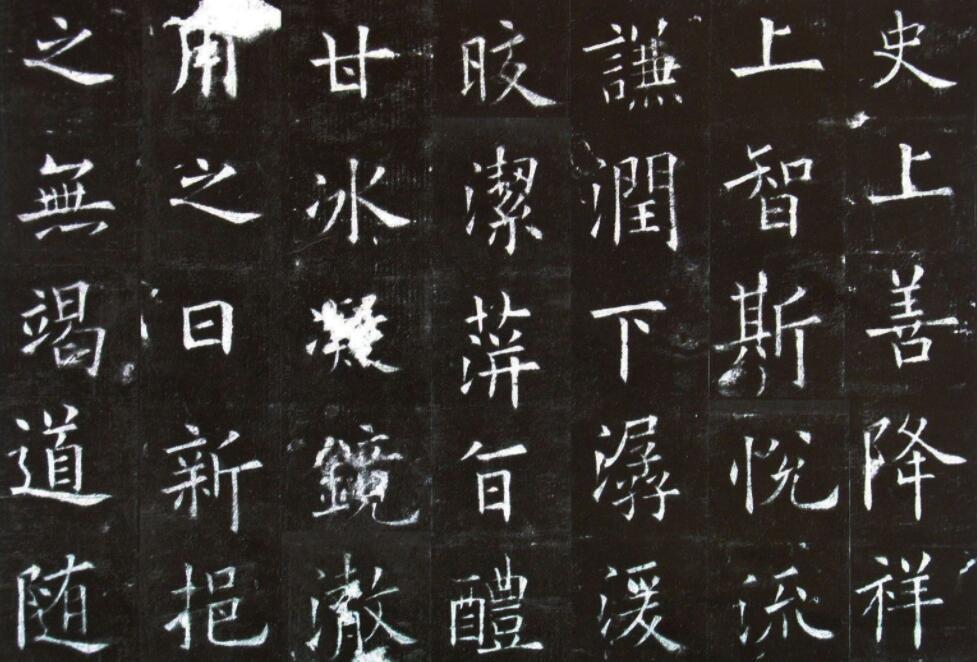 史上善降祥
上智斯悦流
謙潤下潺湲
晈潔蓱旨醴
甘冰凝鏡澈
用之日新挹
之無竭道随